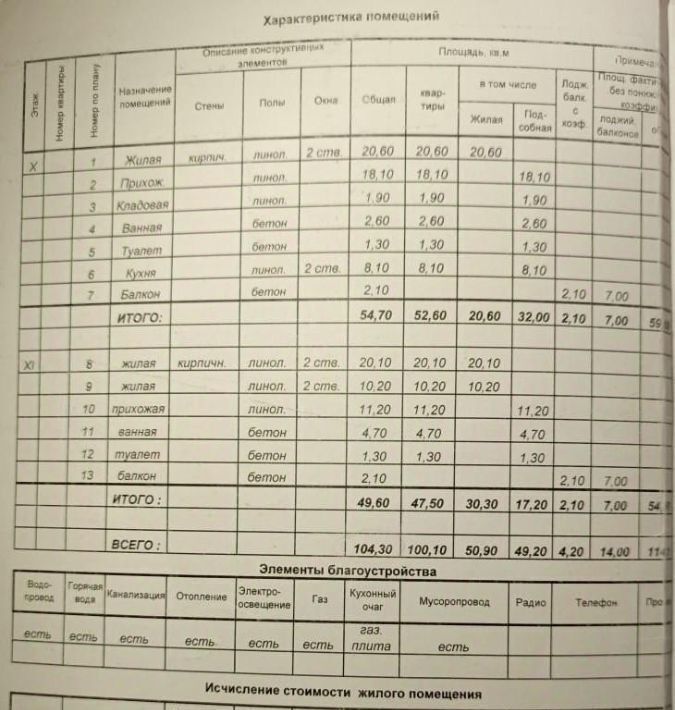 Характеристика помещений
Этаж
Номер квартиры
Номер по плану
Назначение помещений
Описание конструктивных элементов
Стены Полы Окна
Площадь, кв.м
Общая
квар-
тиры
в том числе
Жилая
Под-
собная
Лодж.
балк.
с
коэф.
Площ.
без
лоджий,
балконов
X 1 Жилая кирпич. линол. 2 ств. 20,60 20,60 20,60
2 Прихож. линол. 18,10 18,10 18,10
3 Кладовая линол. 1,90 1,90 1,90
4 Ванная бетон 2,60 2,60 2,60
5 Туалет бетон 1,30 1,30 1,30
6 Кухня линол. 2 ств. 8,10 8,10 8,10
7 Балкон бетон 2,10 2,10 7,00
ИТОГО: 54,70 52,60 20,60 32,00 2,10 7,00
XI 8 жилая кирпичн. линол. 2 ств. 20,10 20,10 20,10
9 жилая линол. 2 ств. 10,20 10,20 10,20
10 прихожая линол. 11,20 11,20 11,20
11 ванная бетон 4,70 4,70 4,70
12 туалет бетон 1,30 1,30 1,30
13 балкон бетон 2,10 2,10 7,00
ИТОГО : 49,60 47,50 30,30 17,20 2,10 7,00
ВСЕГО : 104,30 100,10 50,90 49,20 4,20 14,00
Элементы благоустройства
Водо-
провод
Горячая
вода
Канализация
Отопление
Электро-
освещение
Газ
Кухонный
очаг
Мусоропровод
Радио
Телефон
есть есть есть есть есть есть газ. плита есть
Исчисление стоимости жилого помещения